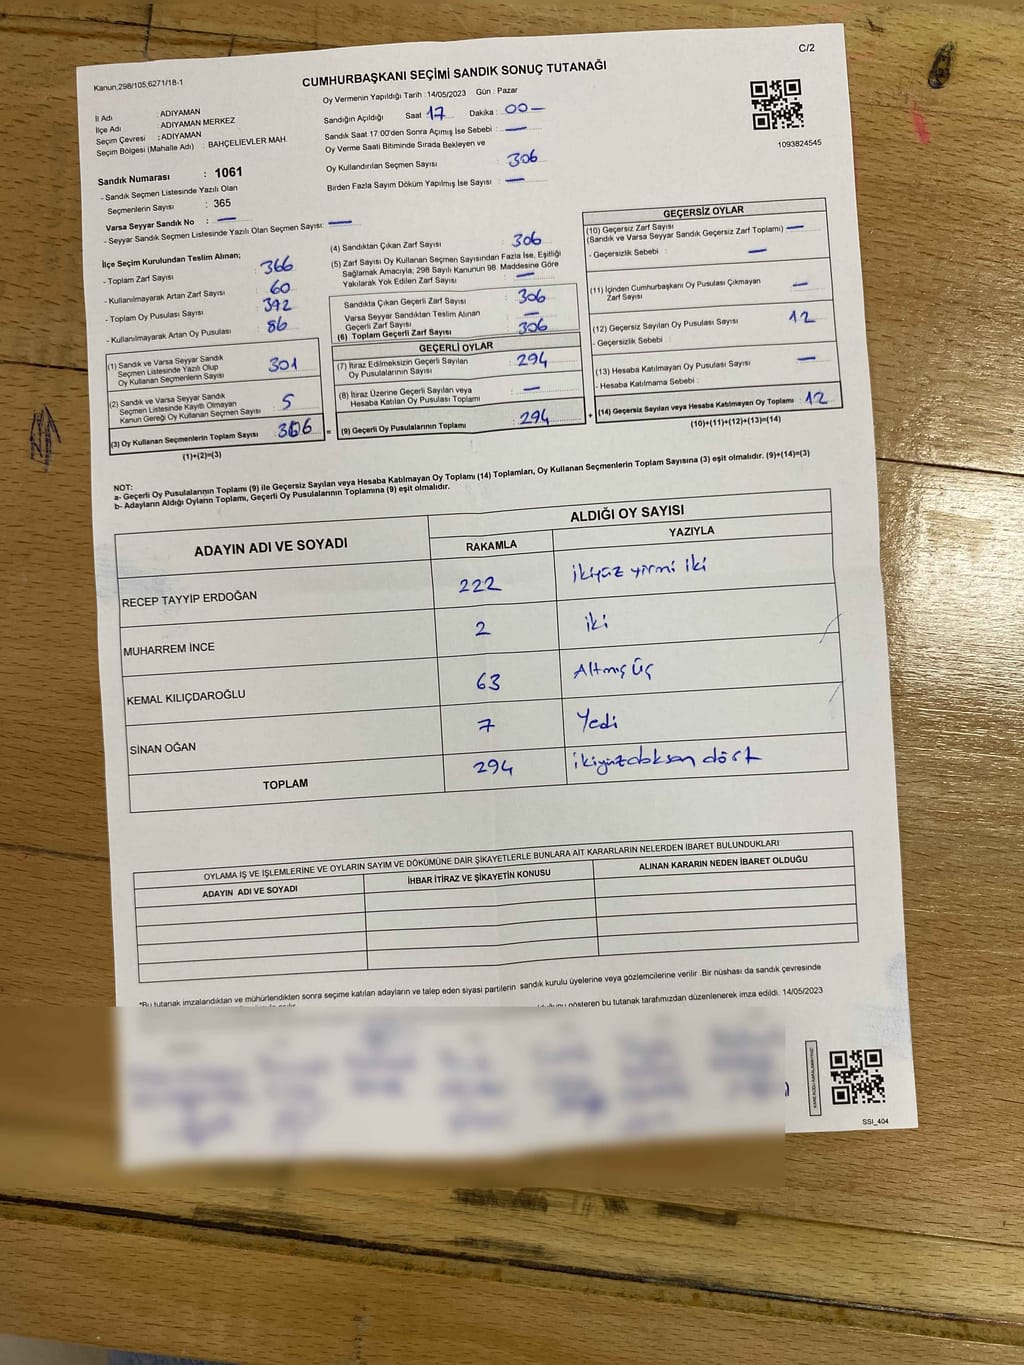 C/2
Kanun,298/105,6271/18-1
CUMHURBAŞKANI SEÇİMİ SANDIK SONUÇ TUTANAĞI
İl Adı : ADIYAMAN
İlçe Adı : ADIYAMAN MERKEZ
Seçim Çevresi : ADIYAMAN
Seçim Bölgesi (Mahalle Adı) : BAHÇELİEVLER MAH.
Oy Vermenin Yapıldığı Tarih : 14/05/2023 Gün : Pazar
Sandığın Açıldığı Saat 17 Dakika : 00 —
Sandık Saat 17:00'den Sonra Açmış İse Sebebi : —
Oy Verme Saati Bitiminde Sırada Bekleyen ve
Oy Kullandırılan Seçmen Sayısı : 306
Birden Fazla Sayım Döküm Yapılmış İse Sayısı : —
1093824545
Sandık Numarası : 1061
- Sandık Seçmen Listesinde Yazılı Olan
Seçmenlerin Sayısı : 365
Varsa Seyyar Sandık No : —
- Seyyar Sandık Seçmen Listesinde Yazılı Olan Seçmen Sayısı: —
İlçe Seçim Kurulundan Teslim Alınan;
- Toplam Zarf Sayısı : 366
- Kullanılmayarak Artan Zarf Sayısı : 60
- Toplam Oy Pusulası Sayısı : 392
- Kullanılmayarak Artan Oy Pusulası : 86
(1) Sandık ve Varsa Seyyar Sandık
Seçmen Listesinde Yazılı Olup
Oy Kullanan Seçmenlerin Sayısı : 301
(2) Sandık ve Varsa Seyyar Sandık
Seçmen Listesinde Kayıtlı Olmayan
Kanun Gereği Oy Kullanan Seçmen Sayısı : 5
(3) Oy Kullanan Seçmenlerin Toplam Sayısı : 306
(1)+(2)=(3)
(4) Sandıktan Çıkan Zarf Sayısı : 306
(5) Zarf Sayısı Oy Kullanan Seçmen Sayısından Fazla İse, Eşitliği
Sağlamak Amacıyla; 298 Sayılı Kanunun 98. Maddesine Göre
Yakılarak Yok Edilen Zarf Sayısı : —
Sandıkta Çıkan Geçerli Zarf Sayısı : 306
Varsa Seyyar Sandıktan Teslim Alınan
Geçerli Zarf Sayısı : —
(6) Toplam Geçerli Zarf Sayısı : 306
GEÇERLİ OYLAR
(7) İtiraz Edilmeksizin Geçerli Sayılan
Oy Pusulalarının Sayısı : 294
(8) İtiraz Üzerine Geçerli Sayılan veya
Hesaba Katılan Oy Pusulası Toplamı : —
= (9) Geçerli Oy Pusulalarının Toplamı : 294 +
GEÇERSİZ OYLAR
(10) Geçersiz Zarf Sayısı
(Sandık ve Varsa Seyyar Sandık Geçersiz Zarf Toplamı) —
- Geçersizlik Sebebi : —
(11) İçinden Cumhurbaşkanı Oy Pusulası Çıkmayan
Zarf Sayısı : —
(12) Geçersiz Sayılan Oy Pusulası Sayısı : 12
- Geçersizlik Sebebi :
(13) Hesaba Katılmayan Oy Pusulası Sayısı : —
- Hesaba Katılmama Sebebi :
(14) Geçersiz Sayılan veya Hesaba Katılmayan Oy Toplamı : 12
(10)+(11)+(12)+(13)=(14)
NOT:
a- Geçerli Oy Pusulalarının Toplamı (9) ile Geçersiz Sayılan veya Hesaba Katılmayan Oy Toplamı (14) Toplamları, Oy Kullanan Seçmenlerin Toplam Sayısına (3) eşit olmalıdır. (9)+(14)=(3)
b- Adayların Aldığı Oyların Toplamı, Geçerli Oy Pusulalarının Toplamına (9) eşit olmalıdır.
ADAYIN ADI VE SOYADI
ALDIĞI OY SAYISI
RAKAMLA YAZIYLA
RECEP TAYYİP ERDOĞAN 222 ikiyüz yirmi iki
MUHARREM İNCE 2 iki
KEMAL KILIÇDAROĞLU 63 Altmış Üç
SİNAN OĞAN 7 Yedi
TOPLAM 294 ikiyüzdoksan dört
OYLAMA İŞ VE İŞLEMLERİNE VE OYLARIN SAYIM VE DÖKÜMÜNE DAİR ŞİKAYETLERLE BUNLARA AİT KARARLARIN NELERDEN İBARET BULUNDUKLARI
ADAYIN ADI VE SOYADI İHBAR İTİRAZ VE ŞİKAYETİN KONUSU ALINAN KARARIN NEDEN İBARET OLDUĞU
*Bu tutanak imzalandıktan ve mühürlendikten sonra seçime katılan adayların ve talep eden siyasi partilerin sandık kurulu üyelerine veya gözlemcilerine verilir. Bir nüshası da sandık çevresinde
gösteren bu tutanak tarafımızdan düzenlenerek imza edildi. 14/05/2023
SSI_404